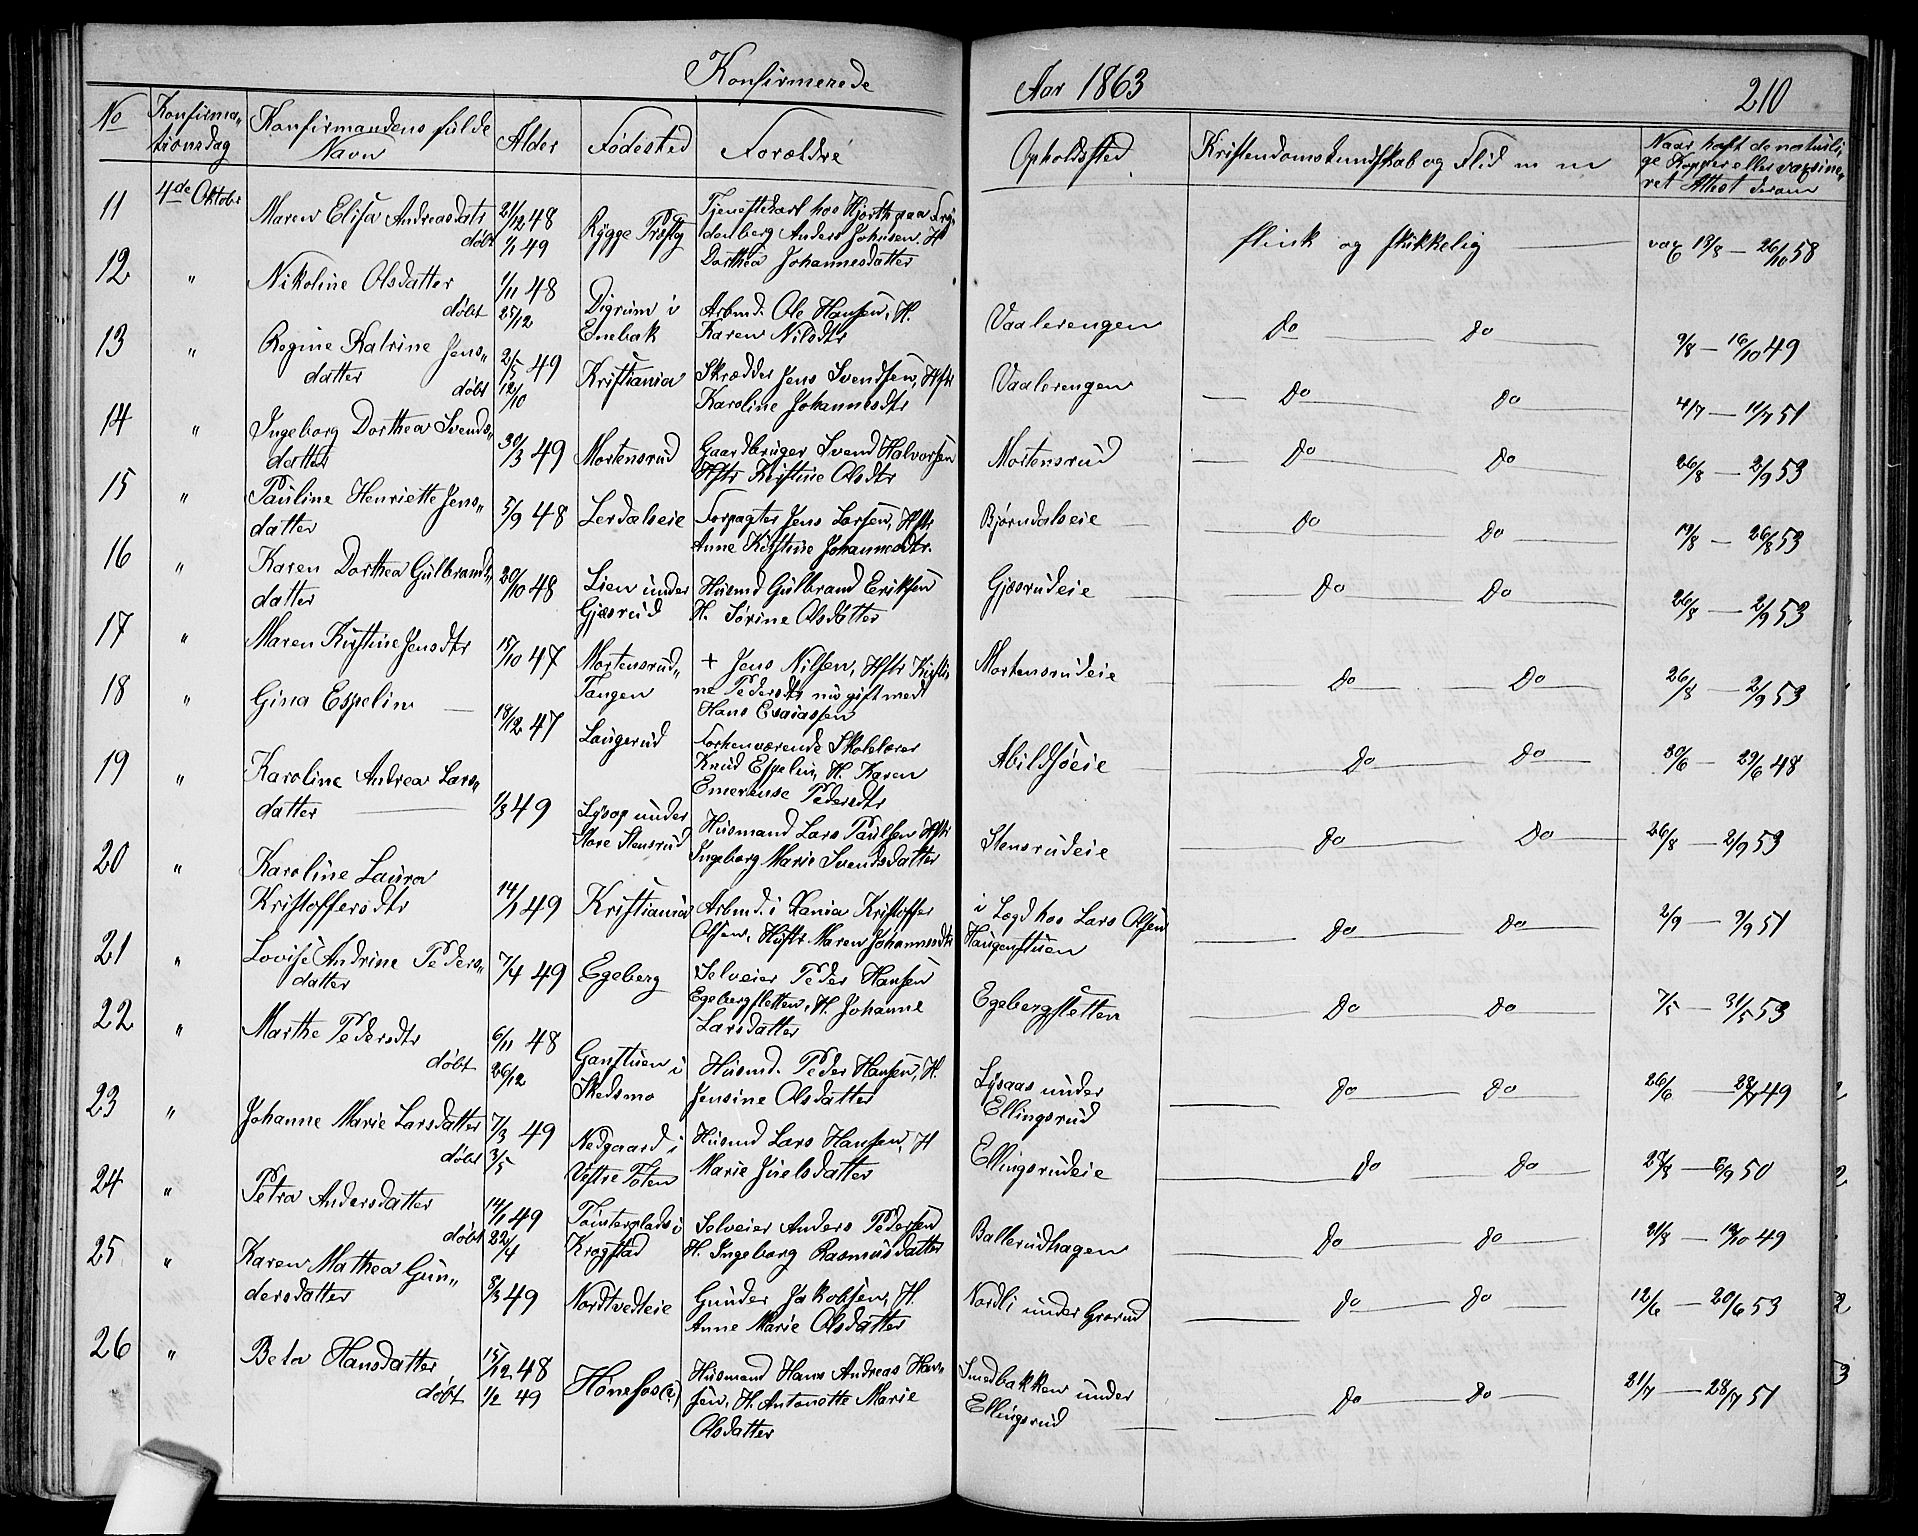 Konfirmerede
Aar 1863
210
No
Konfirma„
tionsdag
Konfirmandens fulde
Navn
Alder
Fødested
Forældre
Opholdssted
Kristendomskundskab og Flid m m
Naar haft de naturli„
ge Kopper eller vaksine„
ret Attest derom
11 4de Oktober Maren Elisa Andreasdatr 21/12 48 Rygge Præstg Tjenestekarl hos Hjorth paa Fry„
døbt 1/1 49 denberg Anders Johnsen. H
Dorthea Johannesdatter
flink og skikkelig vax 18/8 — 26/10 58
12 „ Nikoline Olsdatter 1/11 48 Digrum i Arbmd. Ole Hansen, H.
døbt 25/12 Enebak Karen Nilsdtr
Vaalerengen do do 9/8 — 16/10 49
13 „ Regine Katrine Jens„ 2/5 49 Kristiania Skrædder Jens Svendsen, Hstr
datter døbt 12/10 Karoline Johannesdtr
Vaalerengen Do Do 4/7 — 11/7 51
14 „ Ingeborg Dorthea Svends„ 30/3 49 Mortensrud Gaardbruger Svend Halvorsen
datter Hstr Kirstine Olsdtr
Mortensrud Do Do 26/8 — 2/9 53
15 „ Pauline Henriette Jens„ 5/9 48 Lerdalseie Forpagter Jens Larsen, Hstr
datter Anne Kirstine Johannesdtr.
Bjørndalseie Do Do 19/8 — 26/8 53
16 „ Karen Dorthea Gulbrands„ 20/10 48 Lien under Husmd Gulbrand Eriksen
datter Gjæsrud H. Sørine Olsdatter
Gjæsrudeie Do Do 26/8 — 2/9 53
17 „ Maren Kirstine Jensdtr 15/10 47 Mortensrud„ + Jens Nilsen, Hstr Kirsti„
Tangen ne Pedersdtr nu gift med
Hans Esaiassen
Mortensrudeie Do Do 26/8 — 2/9 53
18 „ Gina Espelin 18/12 47 Laugerud Forhenværende Skolelærer
Knud Espelin, H. Karen
Emerense Pedersdtr
Abildsøeie Do Do 30/6 — 29/6 48
19 „ Karoline Andrea Lars„ 1/3 49 Lysop under Husmand Lars Paulsen Hstr
datter Store Stensrud Ingeborg Marie Svendsdatter
Stensrudeie Do Do 26/8 — 2/9 53
20 „ Karoline Laura 14/1 49 Kristiania Arbmd. i Xania Kristoffer
Kristoffersdtr Olsen, Hustr. Maren Johannesdtr
i Lægd hos Lars Olsen Do Do 2/9 — 9/9 51
Haugenstuen
21 „ Lovise Andrine Peders„ 7/4 49 Egeberg Selveier Peder Hansen
datter Egebergsletten, H. Johanne
Larsdatter
Egebergsletten Do Do 7/5 — 31/5 53
22 „ Marthe Pedersdtr 6/11 48 Ganstuen i Husmd. Peder Hansen, H.
døbt 26/12 Skedsmo Jensine Olsdatter
Lysaas under Do Do 26/6 — 49
Ellingsrud
23 „ Johanne Marie Larsdatter 7/3 49 Nedgaard i Husmd Lars Hansen, H
døbt 3/5 Vestre Toten Marie Juelsdatter
Ellingsrudeie Do Do 50
24 „ Petra Andersdatter 14/1 49 Tomterplads i Selveier Anders Pedersen
døbt 22/4 Krogstad H. Ingeborg Rasmusdatter
Ballerudhagen Do Do 31/8 — 49
25 „ Karen Mathea Gun„ 8/3 49 Nordtvedteie Gunder Jakobsen, H.
dersdatter Anne Marie Olsdatter
Nordli under Grorud do do 12/6 — 20/6 53
26 „ Beta Hansdatter 15/12 48 Hønefos(?) Husmand Hans Andreas Han„
døbt 1/2 49 sen, H. Antonette Marie
Olsdatter
Smedbakken under Do Do 21/7 — 28/7 51
Ellingsrud